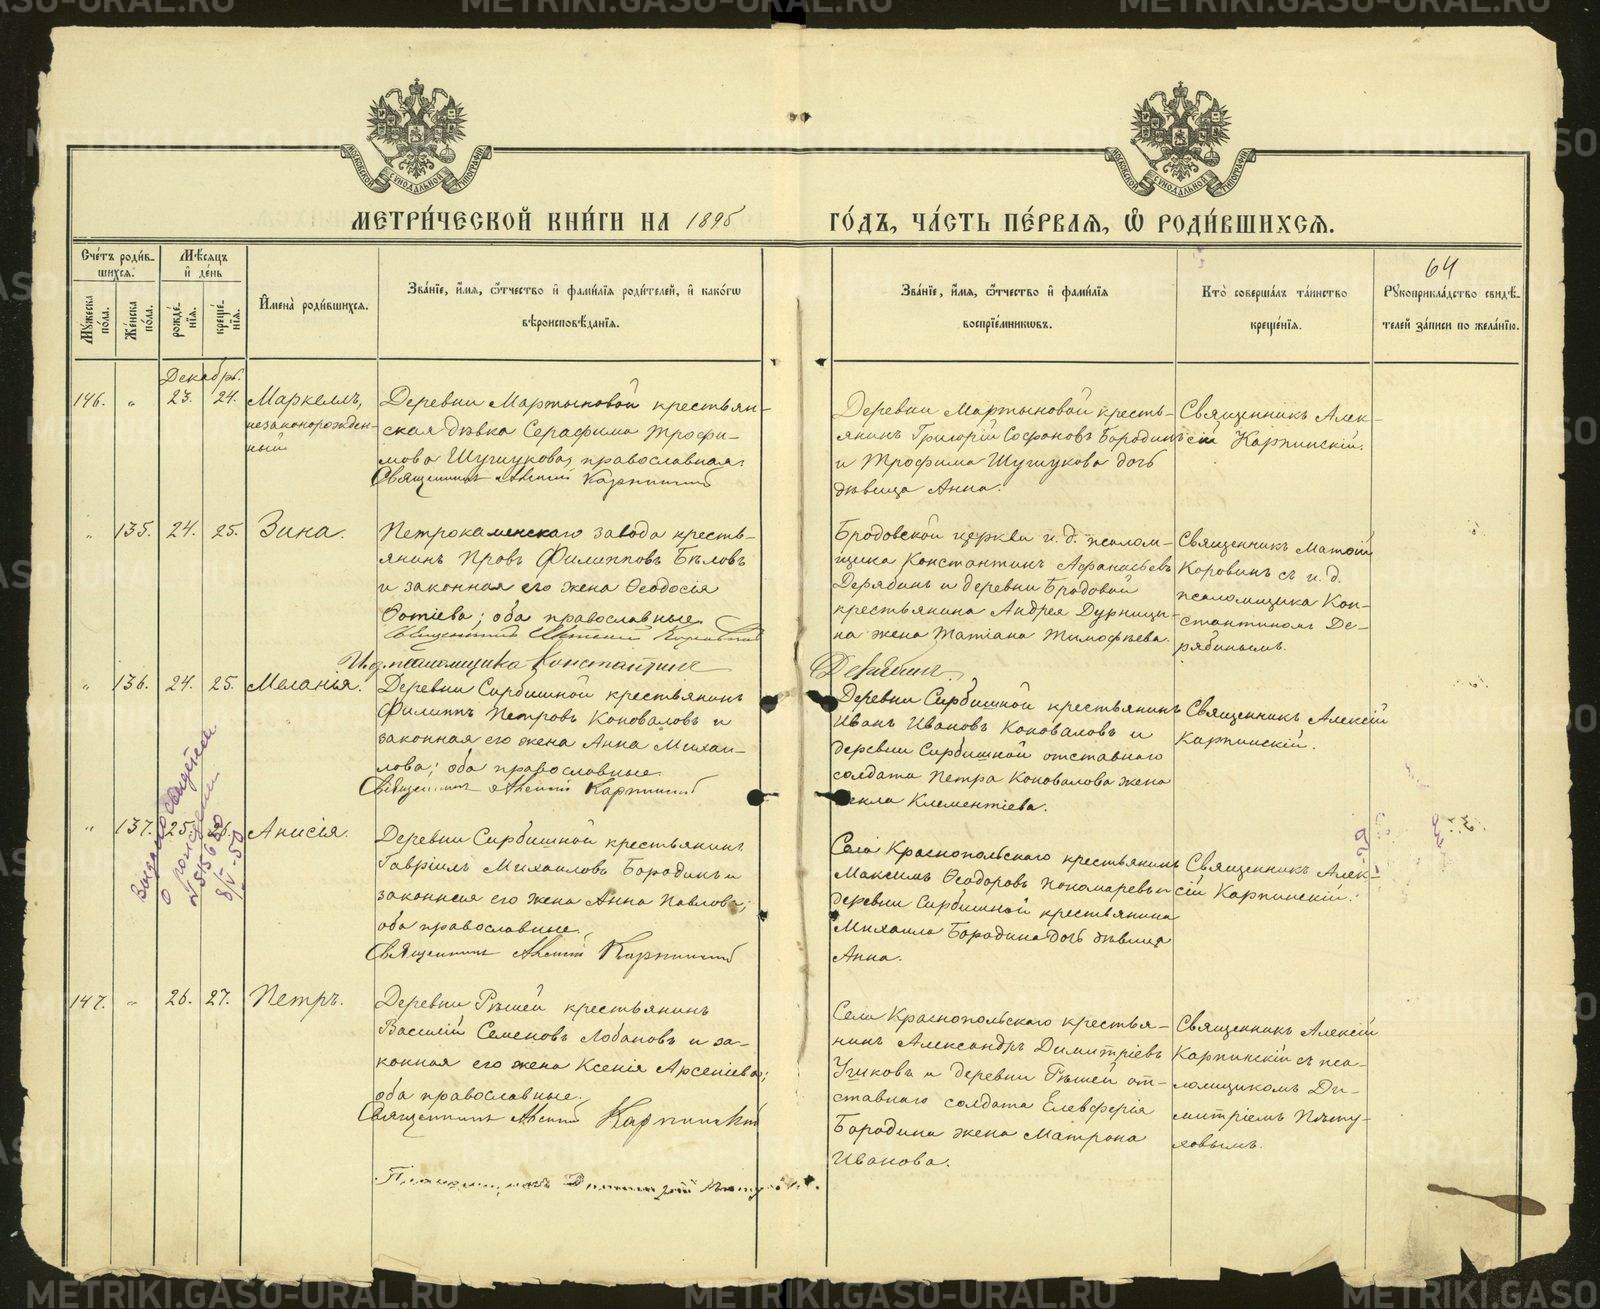 METRIKI.GASO-URAL.RU
МОСКОВСКОЙ СѴНОДАЛЬНОЙ ТИПОГРАФІИ
МОСКОВСКОЙ СѴНОДАЛЬНОЙ ТИПОГРАФІИ
МЕТРИ́ЧЕСКОЙ КНИ́ГИ НА 1895 ГО́ДЪ, ЧА́СТЬ ПЕ́РВАЯ, Ѡ҆ РОДИ́ВШИХСЯ.
64
Сче́тъ роди́вшихся.
Мꙋ́жеска по́ла.
Же́нска по́ла.
Мѣ́сяцъ и҆ де́нь
рожде́нїя.
креще́нїя.
И҆мена̀ роди́вшихся.
Зва́нїе, и҆́мя, ѻ҆́тчество и҆ фами́лїя роди́телей, и҆ како́гѡ вѣроисповѣ́данїя.
Зва́нїе, и҆́мя, ѻ҆́тчество и҆ фами́лїя воспрїе́мникѡвъ.
Кто̀ соверша́лъ та́инство креще́нїя.
Рꙋкоприкла́дство свидѣ́телей за́писи по жела́нїю.
Декабрь.
146. „ 23. 24. Маркеллъ,
незаконорожден-
ный
Деревни Мартыновой крестьян-
ская дѣвка Серафима Трофи-
мова Шушукова, православная.
Священникъ Алексій Карпинскій
Деревни Мартыновой кресть-
янинъ Григорій Софоновъ Бородинъ
и Трофима Шушукова дочь
дѣвица Анна.
Священникъ Алек-
сій Карпинскій.
„ 135. 24. 25. Зина.
Петрокаменскаго завода кресть-
янинъ Провъ Филипповъ Бѣловъ
и законная его жена Ѳеодосія
Фотіева; оба православные.
И. д. псаломщика Константинъ Дерябинъ.
Бродовской церкви и. д. псалом-
щика Константинъ Афанасьевъ
Дерябинъ и деревни Бродовой
крестьянина Андрея Дурници-
на жена Татіана Тимофѣева.
Священникъ Матѳій
Коровинъ съ и. д.
псаломщика Кон-
стантиномъ Де-
рябинымъ.
„ 136. 24. 25. Меланья.
Деревни Сирбишной крестьянинъ
Филиппъ Петровъ Коноваловъ и
законная его жена Анна Михаи-
лова; оба православные.
Священникъ Алексій Карпинскій
Деревни Сирбишной крестьянинъ
Иванъ Ивановъ Коноваловъ и
деревни Сирбишной отставного
солдата Петра Коновалова жена
Ѳекла Клементіева.
Священникъ Алексій
Карпинскій.
„ 137. 25. Анисія.
Деревни Сирбишной крестьянинъ
Гавріилъ Михаиловъ Бородинъ и
законная его жена Анна Павлова;
оба православные.
Священникъ Алексій Карпинскій
Села Краснопольскаго крестьянинъ
Максимъ Ѳеодоровъ Пономаревъ и
деревни Сирбишной крестьянина
Михаила Бородина дочь дѣвица
Анна.
Священникъ Алек-
сій Карпинскій.
о рождении
147. „ 26. 27. Петръ.
Деревни Рѣшей крестьянинъ
Василій Семеновъ Лобановъ и за-
конная его жена Ксенія Арсеніева;
оба православные.
Священникъ Алексій Карпинскій
Села Краснопольскаго крестья-
нинъ Александръ Димитріевъ
Ушковъ и деревни Рѣшей от-
ставного солдата Елевферія
Бородина жена Матрона
Иванова.
Священникъ Алексій
Карпинскій съ пса-
ломщикомъ Ди-
митріемъ Пѣту-
ховымъ.